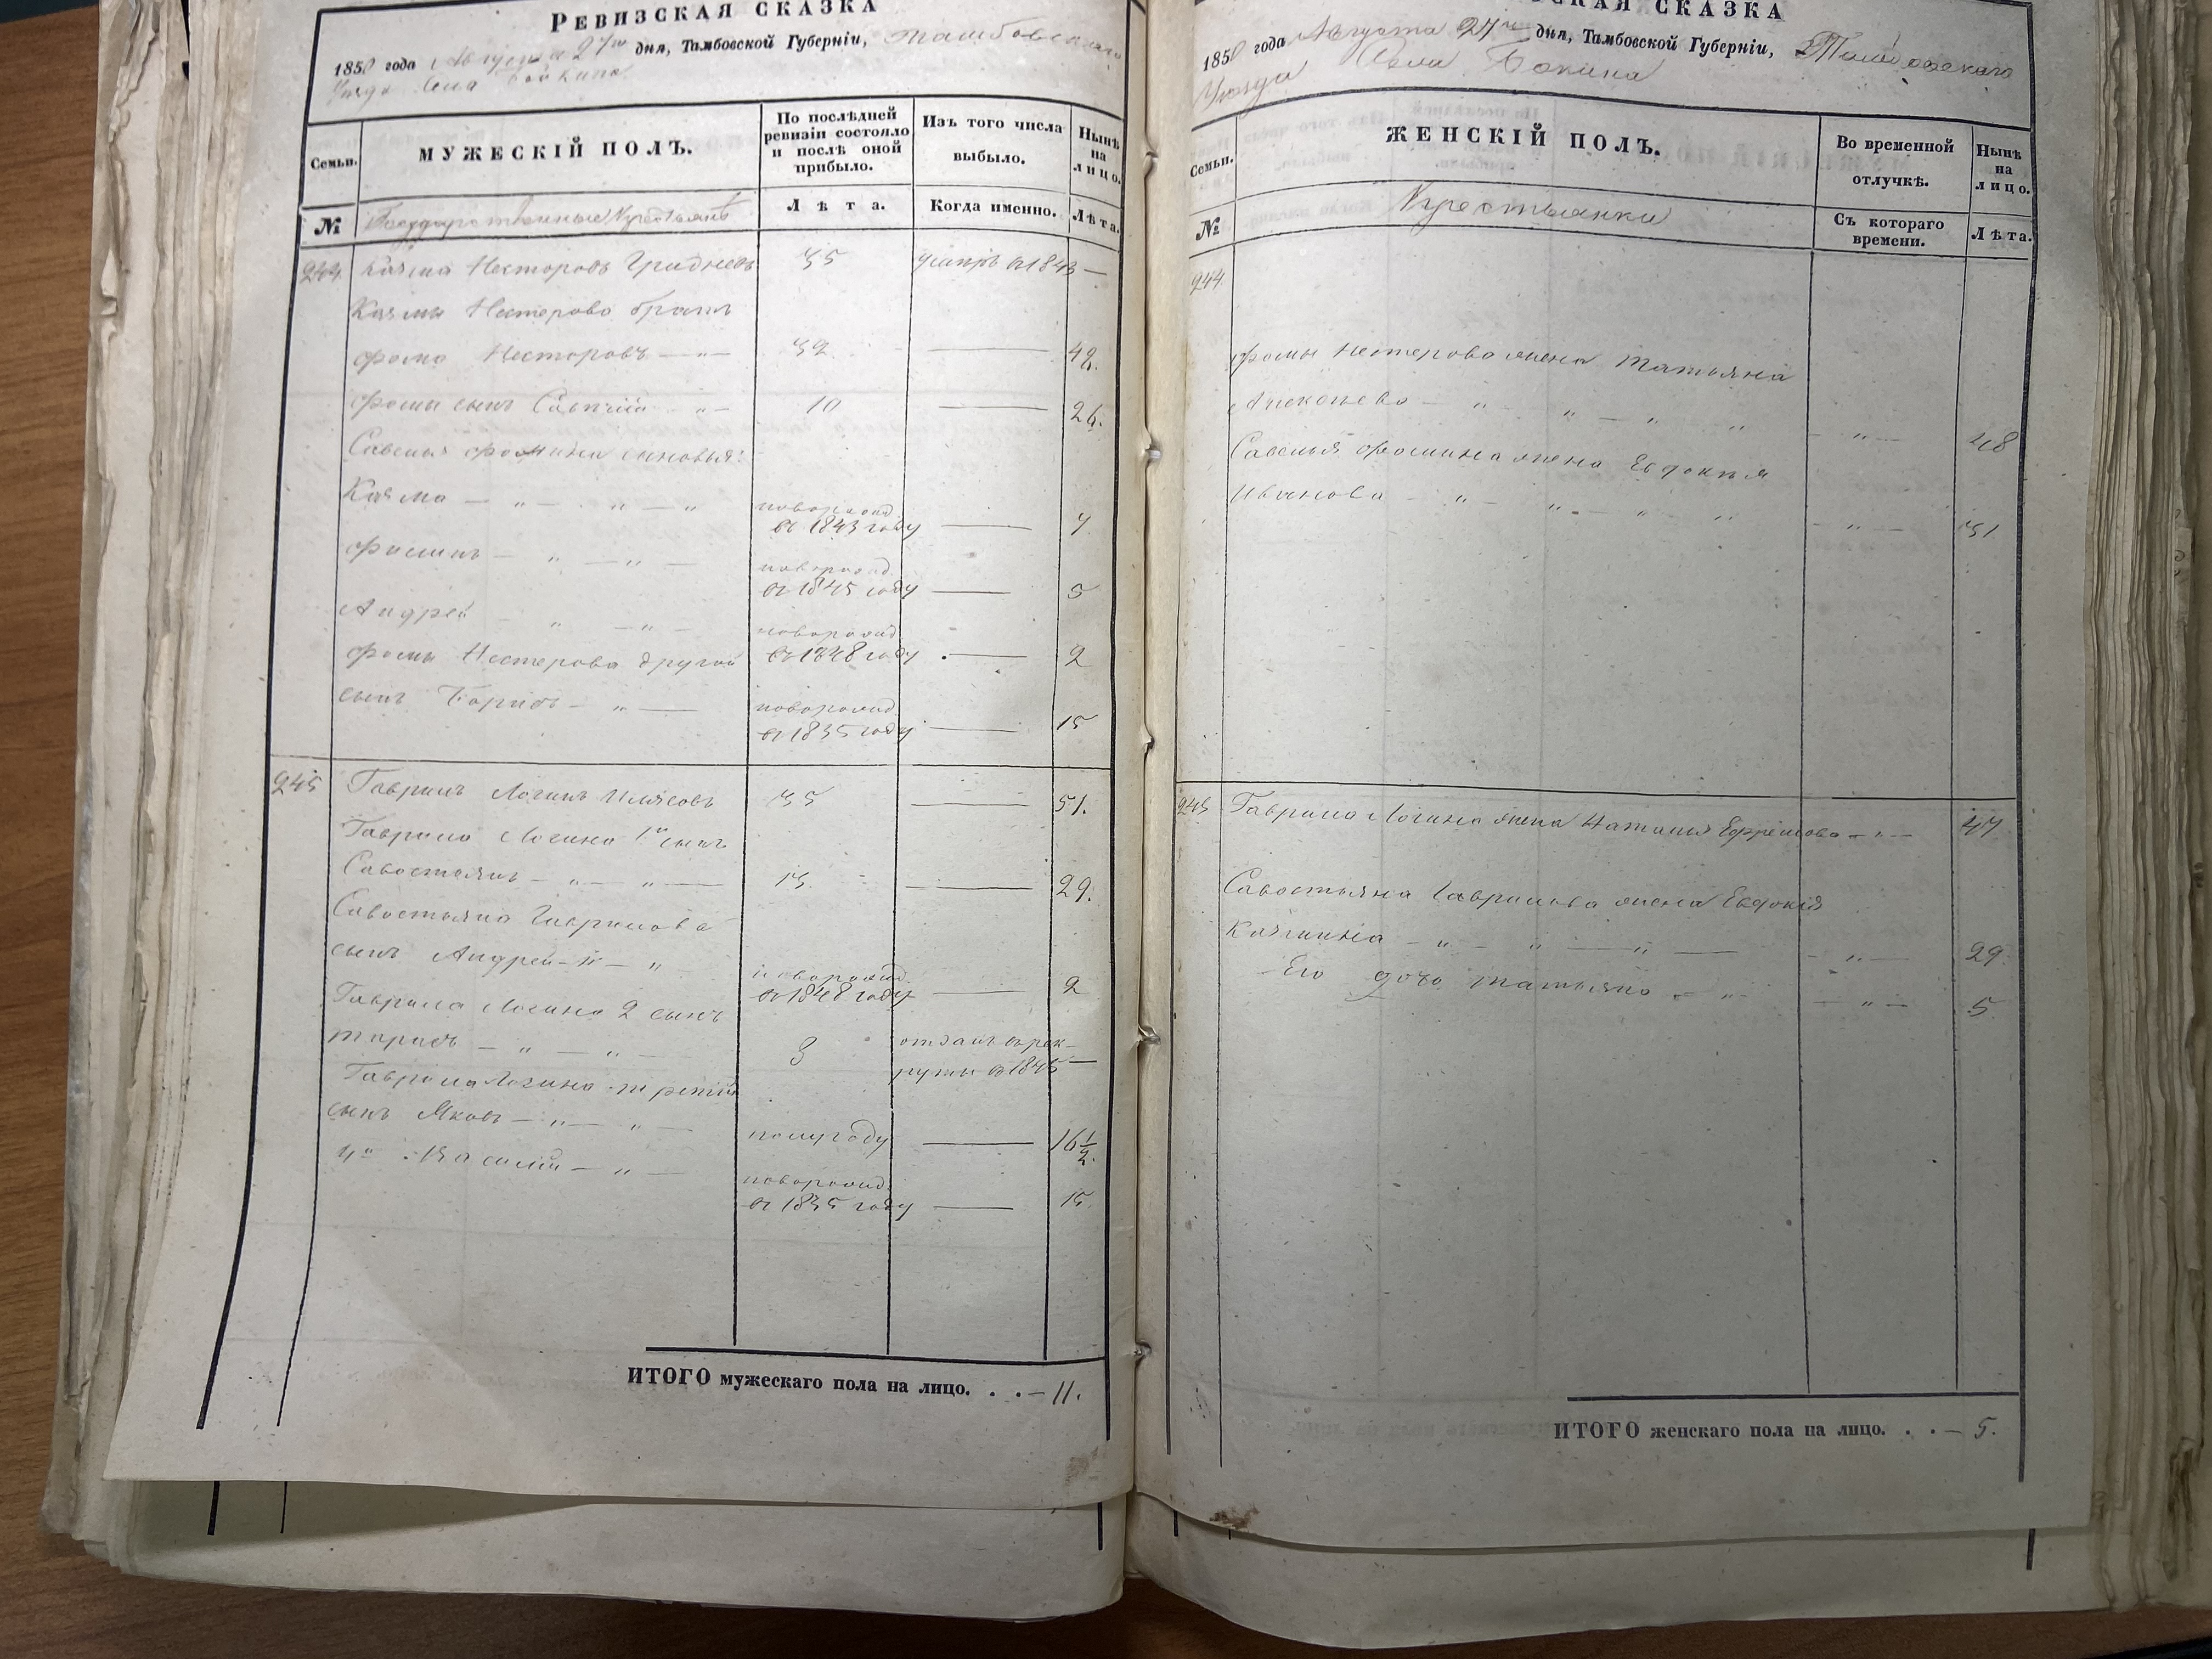 Ревизская сказка
1850 года Августа 27го дня, Тамбовской Губерніи, Тамбовскаго
Уезда Села Бокина
Семьи.
МУЖЕСКІЙ ПОЛЪ.
По послѣдней ревизіи состояло и послѣ оной прибыло.
Изъ того числа выбыло.
Нынѣ на лицо.
№
Государственные Крестьяне
Лѣта.
Когда именно.
Лѣта.
244 Казма Несторовъ Гридневъ 35 умиръ въ 1843 —
Казмы Нестерова братъ
Фома Несторовъ — " — 32 — 42.
Фомы сынъ Савелій — " — 10 — 26.
Савелья Фомина сыновья:
Казма — " — " — " новорожд. въ 1843 году — 7
Филипъ — " — " — новорожд. въ 1845 году — 5
Андрей — " — " — новорожд. въ 1848 году — 2
Фомы Нестерова другой
сынъ Борисъ — " — новорожд. въ 1835 году — 15
245 Гаврилъ Логинъ 35 — 51.
Гаврила Логина 1й сынъ
Савостьянъ — " — " — 13 — 29.
Савостьяна Гаврилова
сынъ Андрей — " — " новорожд. въ 1848 году — 2
Гаврила Логина 2 сынъ
Тарасъ — " — " — 8 отданъ въ рек-
руты въ 1845 —
Гаврила Логина третій
сынъ Яковъ — " — " — полугоду — 16 1/2.
4й Василій — " — новорожд. въ 1835 году — 15
ИТОГО мужескаго пола на лицо. . . — 11.
СКАЯ СКАЗКА
1850 года Августа 27го дня, Тамбовской Губерніи, Тамбовскаго
Уезда Села Бокина
Семьи.
ЖЕНСКІЙ ПОЛЪ.
Во временной отлучкѣ.
Нынѣ на лицо.
№
Крестьянки
Съ котораго времени.
Лѣта.
244
Фомы Нестерова жена Татьяна
Алексеева — " — " — " " — " — 48
Савелья Фомина жена Евдокъя
Иванова — " — " — " " — " — 31
245 Гаврила Логина жена Наталья Ефремова — " — 47
Савостьяна Гаврилова жена Евдокія
Казмина — " — " — " — — " — 29.
Его дочь Татьяна — " — — " — 5.
ИТОГО женскаго пола на лицо. . . — 5.